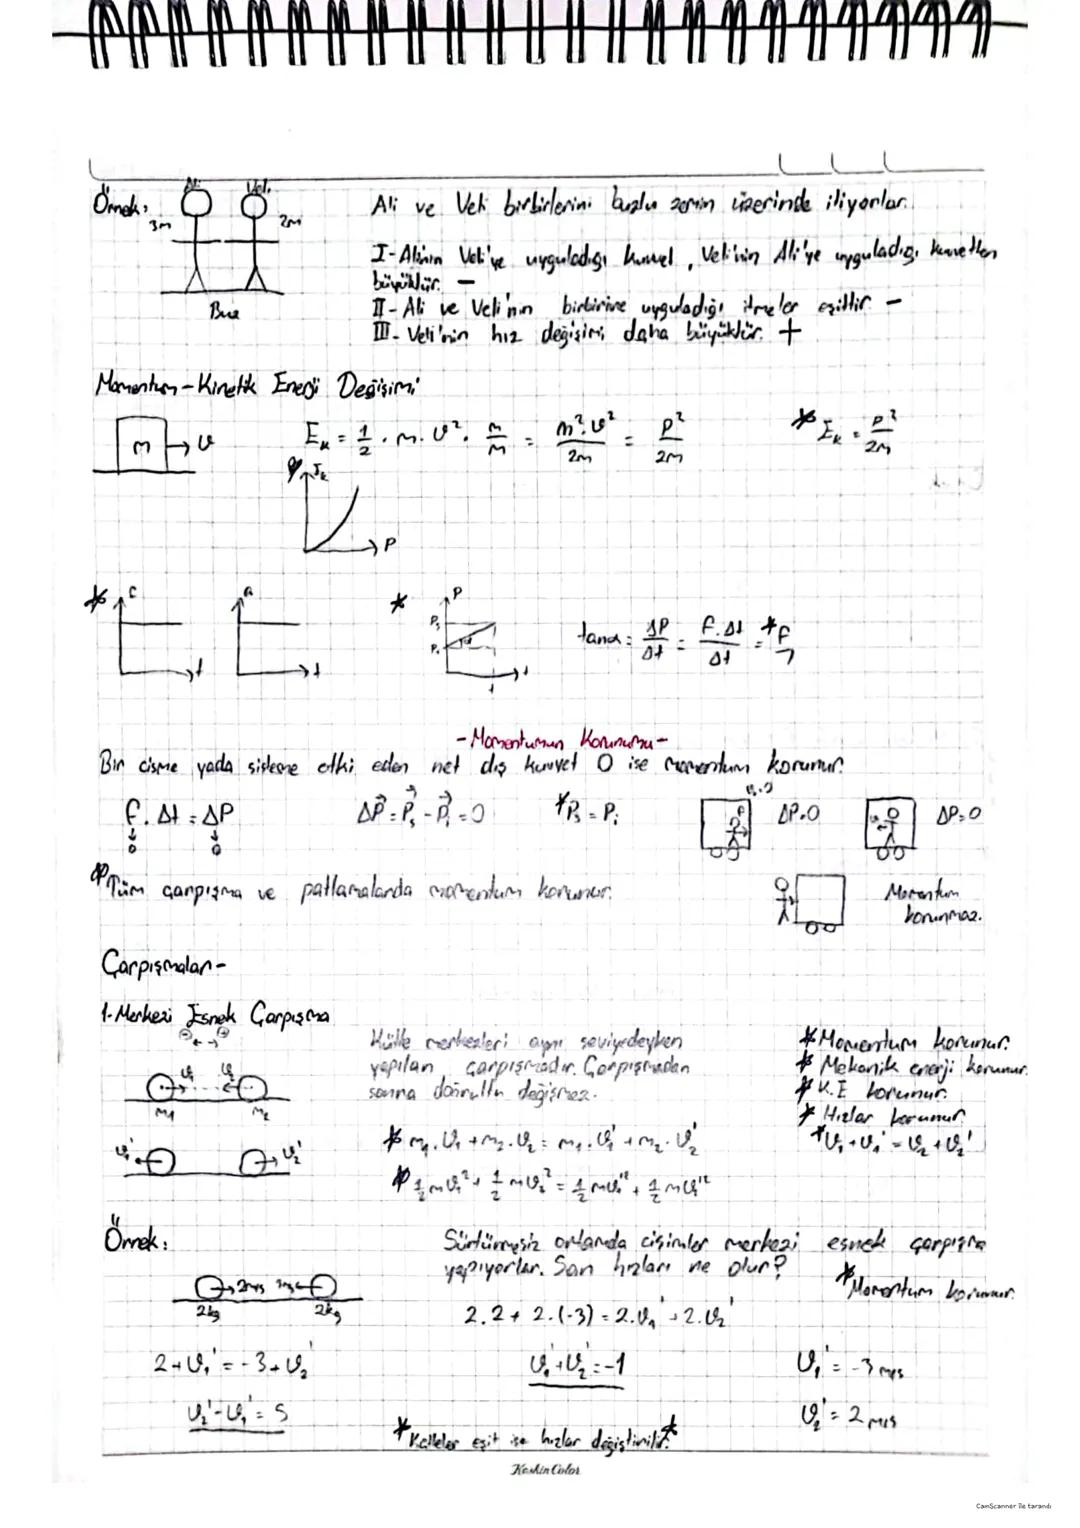 Örnek:
Ali
Veli
3m
2m
Buz
Ali ve Veli birbirlerini buzlu zemin üzerinde itiyorlar.
I- Ali'nin Veli'ye uyguladığı kuvvet, Veli'nin Ali'ye uyguladığı kuvvetten
büyüktür. -
II- Ali ve Veli'nin birbirine uyguladığı itmeler eşittir. -
III- Veli'nin hız değişimi daha büyüktür. +
Momentum-Kinetik Enerji Değişimi
m → υ
Eₖ = 1/2 . m . υ² . m/m = m².υ²/2m = P²/2m
* Eₖ = P²/2m
Eₖ
P
*
t
a
t
*
P
Pₛ
Pᵢ
α
t
tanα = ΔP/Δt = F.Δt/Δt = *F
-Momentumun Korunumu-
Bir cisme yada sisteme etki eden net dış kuvvet 0 ise momentum korunur.
F.Δt = ΔP
0 0
ΔP = Pₛ - Pᵢ = 0
*Pₛ = Pᵢ
ΔP=0
ΔP=0
*Tüm çarpışma ve patlamalarda momentum korunur.
Momentum
korunmaz.
Çarpışmalar-
1-Merkezi Esnek Çarpışma
υ₁ υ₂
m₁ m₂
υ₁' υ₂'
Kütle merkezleri aynı seviyedeyken
yapılan çarpışmadır. Çarpışmadan
sonra doğrultu değişmez.
* m₁.υ₁ + m₂.υ₂ = m₁.υ₁' + m₂.υ₂'
* 1/2 mυ₁² + 1/2 mυ₂² = 1/2 mυ₁'² + 1/2 mυ₂'²
* Momentum korunur.
* Mekanik enerji korunur.
* K.E korunur.
* Hızlar korunur.
* υ₁ + υ₁' = υ₂ + υ₂'
Örnek:
2m/s 3m/s
2kg 2kg
Sürtünmesiz ortamda cisimler merkezi esnek çarpışma
yapıyorlar. Son hızları ne olur?
*Momentum korunur.
2.2 + 2.(-3) = 2.υ₁' + 2.υ₂'
2+υ₁' = -3+υ₂'
υ₁'+υ₂' = -1
υ₁' = -3 m/s
υ₂'-υ₁' = 5
υ₂' = 2 m/s
*Kütleler eşit ise hızlar değiştirilir.*
Keskin Color
CamScanner ile tarandı